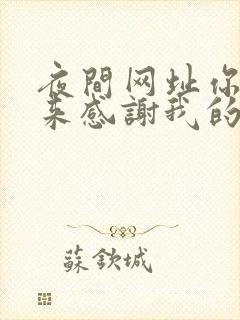 夜間网址你
来感謝我的
蘇欽城